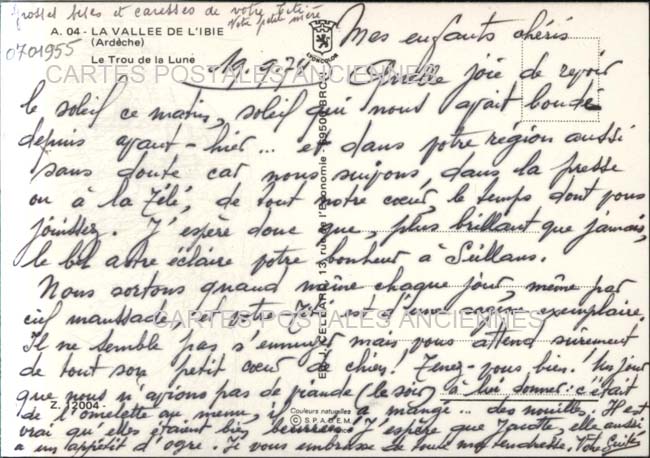 grosses bises et caresses de votre
Votre petite mère
A. 04 - LA VALLEE DE L'IBIE
(Ardèche)
Le Trou de la Lune
0701955
SPADEM
CARTES POSTALES ANCIENNES
Mes enfants chéris
19.9.74 Quelle joie de revoir
le soleil ce matin, soleil qui nous avait boudé
depuis avant-hier... et dans votre région aussi
sans doute car nous suivons, dans la presse
ou à la Télé, de tout notre cœur, le temps dont vous
jouissez. J'espère donc que, plus brillant que jamais,
le bel astre éclaire votre bonheur à Seillans.
Nous sortons quand même chaque jour, même par
ciel maussade, est d'une exemplaire.
CARTES POSTALES ANCIENNES
Il ne semble pas s'ennuyer mais vous attend sûrement
de tout son petit cœur de chien! Tenez-vous bien! Un jour
que nous n'avions pas de viande (le soir) à lui donner: c'était
Z. 12004 -
de l'omelette au menu, il a mangé... des nouilles. Il est
vrai qu'elles étaient bien beurrées! J'espère que Javotte, elle aussi
a un appétit d'ogre. Je vous embrasse de toute ma tendresse. Votre
Couleurs naturelles
© S.P.A.D.E.M.
13, rue de l'Economie - 95500